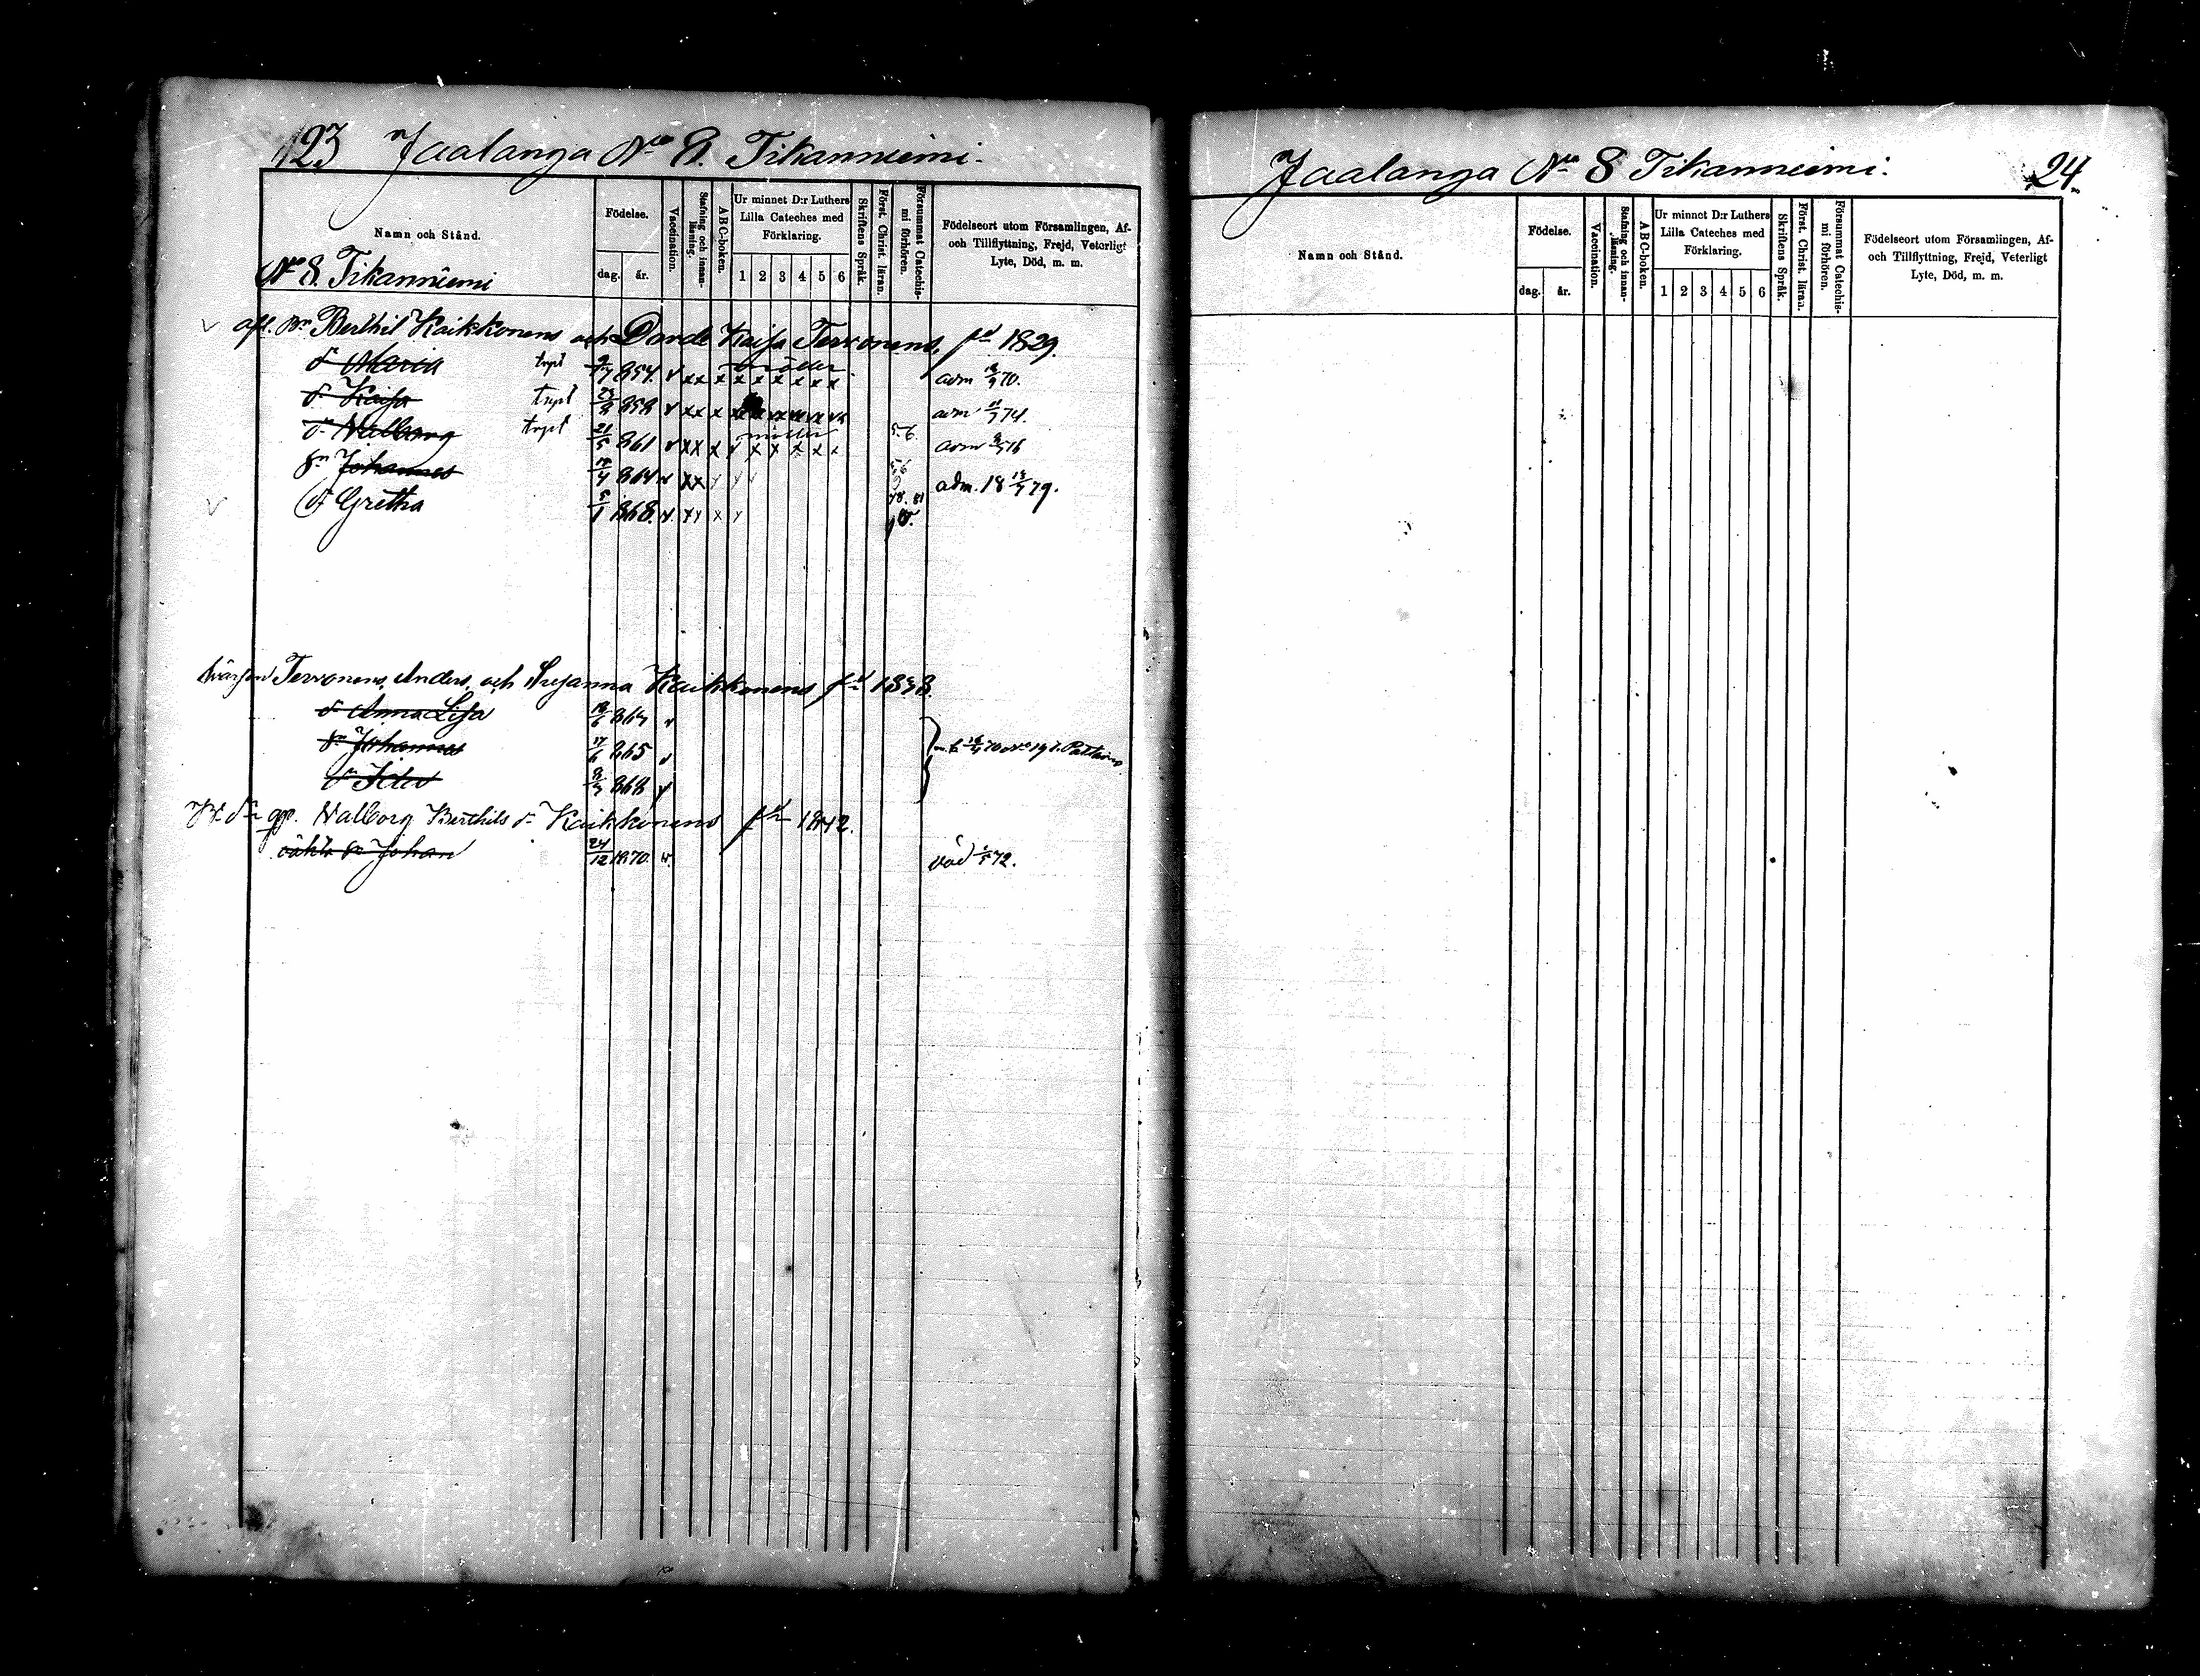 123 Jaalanga No 8. Tikanniemi.
Namn och Stånd.
Födelse.
dag.
år.
Vaccination.
Stafning och innan-läsning.
ABC-boken.
Ur minnet D:r Luthers
Lilla Cateches med
Förklaring.
1 2 3 4 5 6
Skriftens Språk.
Först. Christ. läran.
Försummat Catechis-mi förhören.
Födelseort utom Församlingen, Af-
och Tillflyttning, Frejd, Veterligt
Lyte, Död, m. m.
No 8. Tikanniemi
afl. Bn Berthil Kaikkonens och Karja Tervonens, fd 1829.
dr Maria 854 adm 70.
dr Kaisa 858 adm 74.
dr Walborg 21/5 861 adm
sn Johannes 864 adm. 18 79.
dr Gretha 5/1 1868.
Tervonens, Anders, och Susanna Kaikkonens fd
dr Anna Lisa
sn Johannes 17/6 865
sn 868
Walborg Berthils dr Kaikkonens fd 1842.
oäkta sn Johan 24/12 1870. död 72.
Jaalanga No 8 Tikanniemi. 24.
Namn och Stånd.
Födelse.
dag.
år.
Vaccination.
Stafning och innan-läsning.
ABC-boken.
Ur minnet D:r Luthers
Lilla Cateches med
Förklaring.
1 2 3 4 5 6
Skriftens Språk.
Först. Christ. läran.
Försummat Catechis-mi förhören.
Födelseort utom Församlingen, Af-
och Tillflyttning, Frejd, Veterligt
Lyte, Död, m. m.